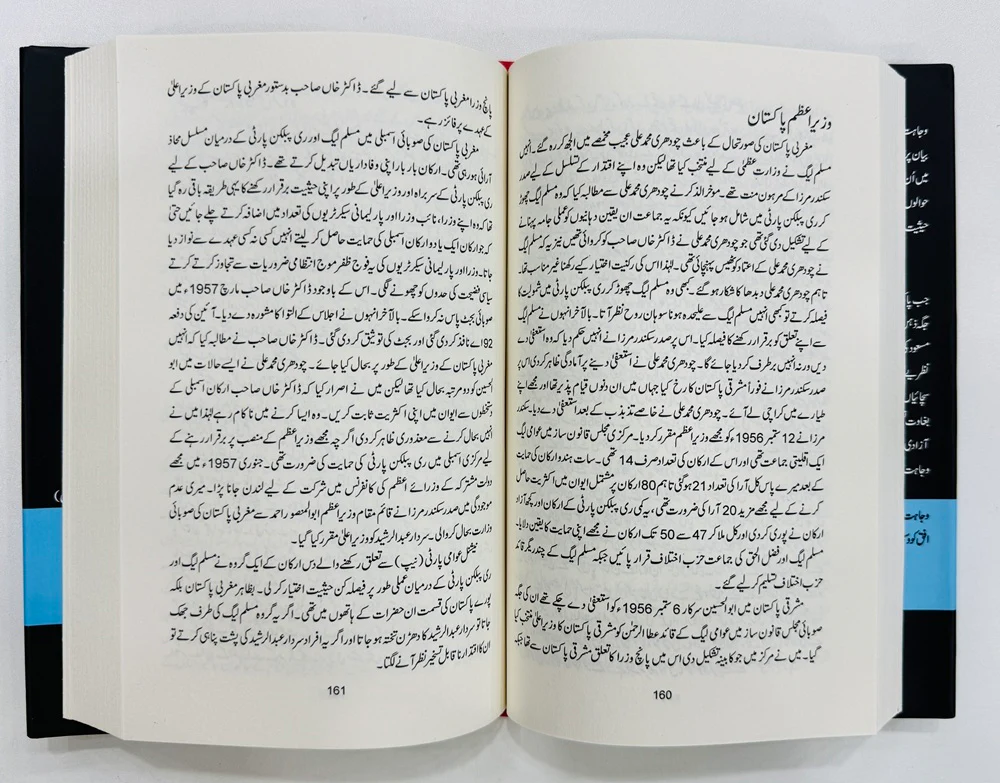 وزیراعظم پاکستان
مغربی پاکستان کی صورتحال کے باعث چودھری محمد علی عجیب مخمصے میں الجھ کر رہ گئے۔ انہیں
مسلم لیگ نے وزارت عظمیٰ کے لیے منتخب کیا تھا لیکن وہ اپنے اقتدار کے تسلسل کے لیے صدر
سکندر مرزا کے مرہون منت تھے۔ مؤخرالذکر نے چودھری محمد علی سے مطالبہ کیا کہ وہ مسلم لیگ چھوڑ
کر ری پبلکن پارٹی میں شامل ہو جائیں کیونکہ یہ جماعت ان یقین دہانیوں کو عملی جامہ پہنانے
کے لیے تشکیل دی گئی تھی جو چودھری محمد علی نے ڈاکٹر خاں صاحب کو کروائی تھیں نیز یہ کہ مسلم لیگ
نے چودھری محمد علی کے اعتماد کو ٹھیس پہنچائی تھی۔ لہٰذا اس کی رکنیت اختیار کیے رکھنا غیر مناسب تھا۔
تاہم چودھری محمد علی دبدھا کا شکار ہو گئے۔ کبھی وہ مسلم لیگ چھوڑ کر ری پبلکن پارٹی میں شمولیت کا
فیصلہ کرتے تو کبھی انہیں مسلم لیگ سے علیحدہ ہونا سوہان روح نظر آتا۔ بالآخر انہوں نے مسلم لیگ
سے اپنے تعلق کو برقرار رکھنے کا فیصلہ کیا۔ اس پر صدر سکندر مرزا نے انہیں حکم دیا کہ وہ استعفیٰ دے
دیں ورنہ انہیں برطرف کر دیا جائے گا۔ چودھری محمد علی نے استعفیٰ دینے پر آمادگی ظاہر کر دی اس پر
صدر سکندر مرزا نے فوراً مشرقی پاکستان کا رخ کیا جہاں میں ان دنوں قیام پذیر تھا اور مجھے اپنے
طیارے میں کراچی لے آئے۔ چودھری محمد علی نے خاصے تذبذب کے بعد استعفیٰ دے دیا۔ سکندر
مرزا نے 12 ستمبر 1956ء کو مجھے وزیراعظم مقرر کر دیا۔ مرکزی مجلس قانون ساز میں عوامی لیگ
ایک اقلیتی جماعت تھی اور اس کے ارکان کی تعداد صرف 14 تھی۔ سات ہندو ارکان کی حمایت
کے بعد میرے پاس کل آرا کی تعداد 21 ہو گئی تاہم 80 ارکان پر مشتمل ایوان میں اکثریت حاصل
کرنے کے لیے مجھے مزید 20 آرا کی ضرورت تھی، یہ کمی ری پبلکن پارٹی کے ارکان اور کچھ آزاد
ارکان نے پوری کر دی اور کل ملا کر 47 سے 50 تک ارکان نے مجھے اپنی حمایت کا یقین دلایا۔
مسلم لیگ اور فضل الحق کی جماعت حزب اختلاف قرار پائیں جبکہ مسلم لیگ کے چندریگر قائد
حزب اختلاف تسلیم کر لیے گئے۔
مشرقی پاکستان میں ابوالحسین سرکار 6 ستمبر 1956ء کو استعفیٰ دے چکے تھے ان کی جگہ
صوبائی مجلس قانون ساز میں عوامی لیگ کے قائد عطا الرحمٰن کو مشرقی پاکستان کا وزیراعلیٰ منتخب کیا
گیا۔ میں نے مرکز میں جو کابینہ تشکیل دی اس میں پانچ وزرا کا تعلق مشرقی پاکستان سے تھا جبکہ
160
پانچ وزرا مغربی پاکستان سے لیے گئے۔ ڈاکٹر خاں صاحب بدستور مغربی پاکستان کے وزیراعلیٰ
کے عہدے پر فائز رہے۔
مغربی پاکستان کی صوبائی اسمبلی میں مسلم لیگ اور ری پبلکن پارٹی کے درمیان مسلسل محاذ
آرائی ہو رہی تھی۔ ارکان بار بار اپنی وفاداریاں تبدیل کرتے تھے۔ ڈاکٹر خاں صاحب کے لیے
ری پبلکن پارٹی کے سربراہ اور وزیراعلیٰ کے طور پر اپنی حیثیت برقرار رکھنے کا یہی طریقہ باقی رہ گیا
تھا کہ وہ اپنے وزرا، نائب وزرا اور پارلیمانی سیکرٹریوں کی تعداد میں اضافہ کرتے چلے جائیں حتیٰ
کہ جو ارکان ایک یا دو ارکان اسمبلی کی حمایت حاصل کر لیتے انہیں کسی نہ کسی عہدے سے نواز دیا
جاتا۔ وزرا اور پارلیمانی سیکرٹریوں کی یہ فوج ظفر موج انتظامی ضروریات سے تجاوز کرتے کرتے
سیاسی فضیحت کی حدوں کو چھونے لگی۔ اس کے باوجود ڈاکٹر خاں صاحب مارچ 1957ء میں
صوبائی بجٹ پاس نہ کروا سکے۔ بالآخر انہوں نے اجلاس کے التوا کا مشورہ دے دیا۔ آئین کی دفعہ
92 اے نافذ کر دی گئی اور بجٹ کی توثیق کر دی گئی۔ ڈاکٹر خاں صاحب نے مطالبہ کیا کہ انہیں
مغربی پاکستان کے وزیراعلیٰ کے طور پر بحال کیا جائے۔ چودھری محمد علی نے ایسے حالات میں ابو
الحسین کو دو مرتبہ بحال کیا تھا لیکن میں نے اصرار کیا کہ ڈاکٹر خاں صاحب ارکان اسمبلی کے
دستخطوں سے ایوان میں اپنی اکثریت ثابت کریں۔ وہ ایسا کرنے میں ناکام رہے لہٰذا میں نے
انہیں بحال کرنے سے معذوری ظاہر کر دی اگرچہ مجھے وزیراعظم کے منصب پر برقرار رہنے کے
لیے مرکزی اسمبلی میں ری پبلکن پارٹی کی حمایت کی ضرورت تھی۔ جنوری 1957ء میں مجھے
دولت مشترکہ کے وزرائے اعظم کی کانفرنس میں شرکت کے لیے لندن جانا پڑا۔ میری عدم
موجودگی میں صدر سکندر مرزا نے قائم مقام وزیراعظم ابوالمنصور احمد سے مغربی پاکستان کی صوبائی
وزارت بحال کروا لی۔ سردار عبدالرشید کو وزیراعلیٰ مقرر کیا گیا۔
نیشنل عوامی پارٹی (نیپ) سے تعلق رکھنے والے دس ارکان کے ایک گروہ نے مسلم لیگ اور
ری پبلکن پارٹی کے درمیان عملی طور پر فیصلہ کن حیثیت اختیار کر لی۔ بظاہر مغربی پاکستان بلکہ
پورے پاکستان کی قسمت ان حضرات کے ہاتھوں میں تھی۔ اگر یہ گروہ مسلم لیگ کی طرف جھک
جاتا تو سردار عبدالرشید کا دھڑن تختہ ہو جاتا اور اگر یہ افراد سردار عبدالرشید کی پشت پناہی کرتے تو
ان کا اقتدار ناقابل تسخیر نظر آنے لگتا۔
161
وجاہت
بیان پر
میں اُن
حوالوں
حیثیت
جب پا
جگہ ذہن
مسعود کی
نظریے
سچائیاں
بغاوت
آزادی
وجاہت
وجاہت
افق کو د